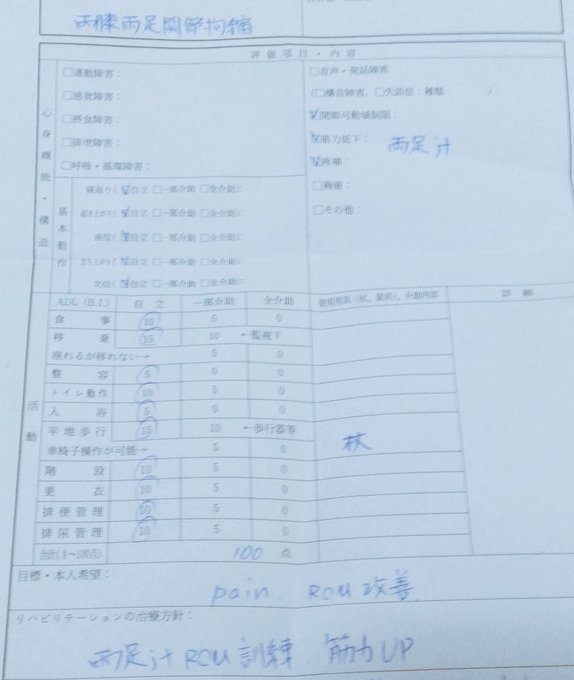 両膝両足関節拘縮
評価項目・内容
心身機能・構造
□運動障害：
□感覚障害：
□摂食障害：
□排泄障害：
□呼吸・循環障害：
□音声・発話障害
(□構音障害、□失語症：種類 )
☑関節可動域制限：
☑筋力低下： 両足汁
☑疼痛：
□褥瘡：
□その他：
基本動作
寝返り( ☑自立 □一部介助 □全介助):
起き上がり( ☑自立 □一部介助 □全介助):
座位( ☑自立 □一部介助 □全介助):
立ち上がり( ☑自立 □一部介助 □全介助):
立位( ☑自立 □一部介助 □全介助):
活動
ADL (B.I.) 自立 一部介助 全介助 使用用具(杖、装具)、介助内容 詳細
食事 10 5 0
移乗 15 10 ←監視下
座れるが移れない→ 5 0
整容 5 0 0
トイレ動作 10 5 0
入浴 5 0 0
平地歩行 15 10 ←歩行器等 杖
車椅子操作が可能→ 5 0
階段 10 5 0
更衣 10 5 0
排便管理 10 5 0
排尿管理 10 5 0
合計(0～100点) 100 点
目標・本人希望：
pain. ROM 改善
リハビリテーションの治療方針：
両足汁 ROM 訓練 筋力UP